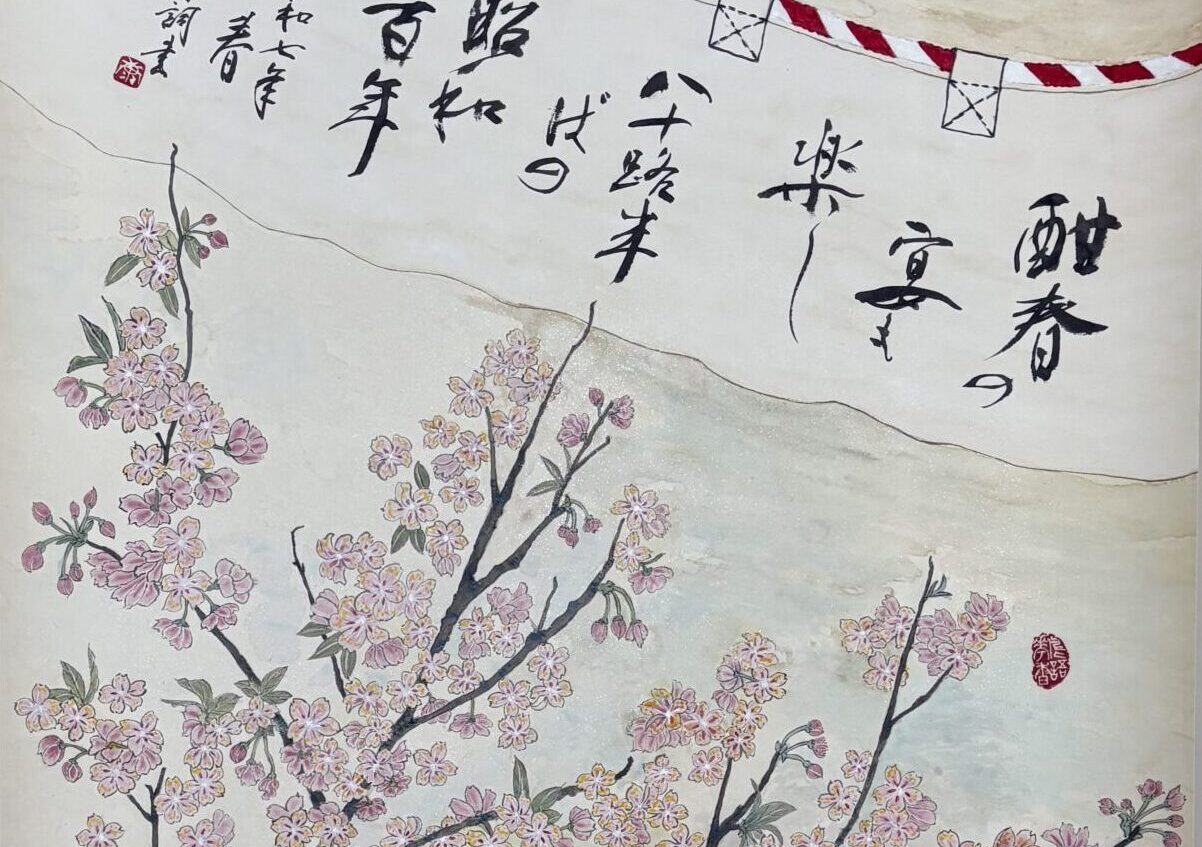 酣春の
宴も
楽し
八十路半
ばの
昭和
百年
和七年
春
詞書
鳥語
花香